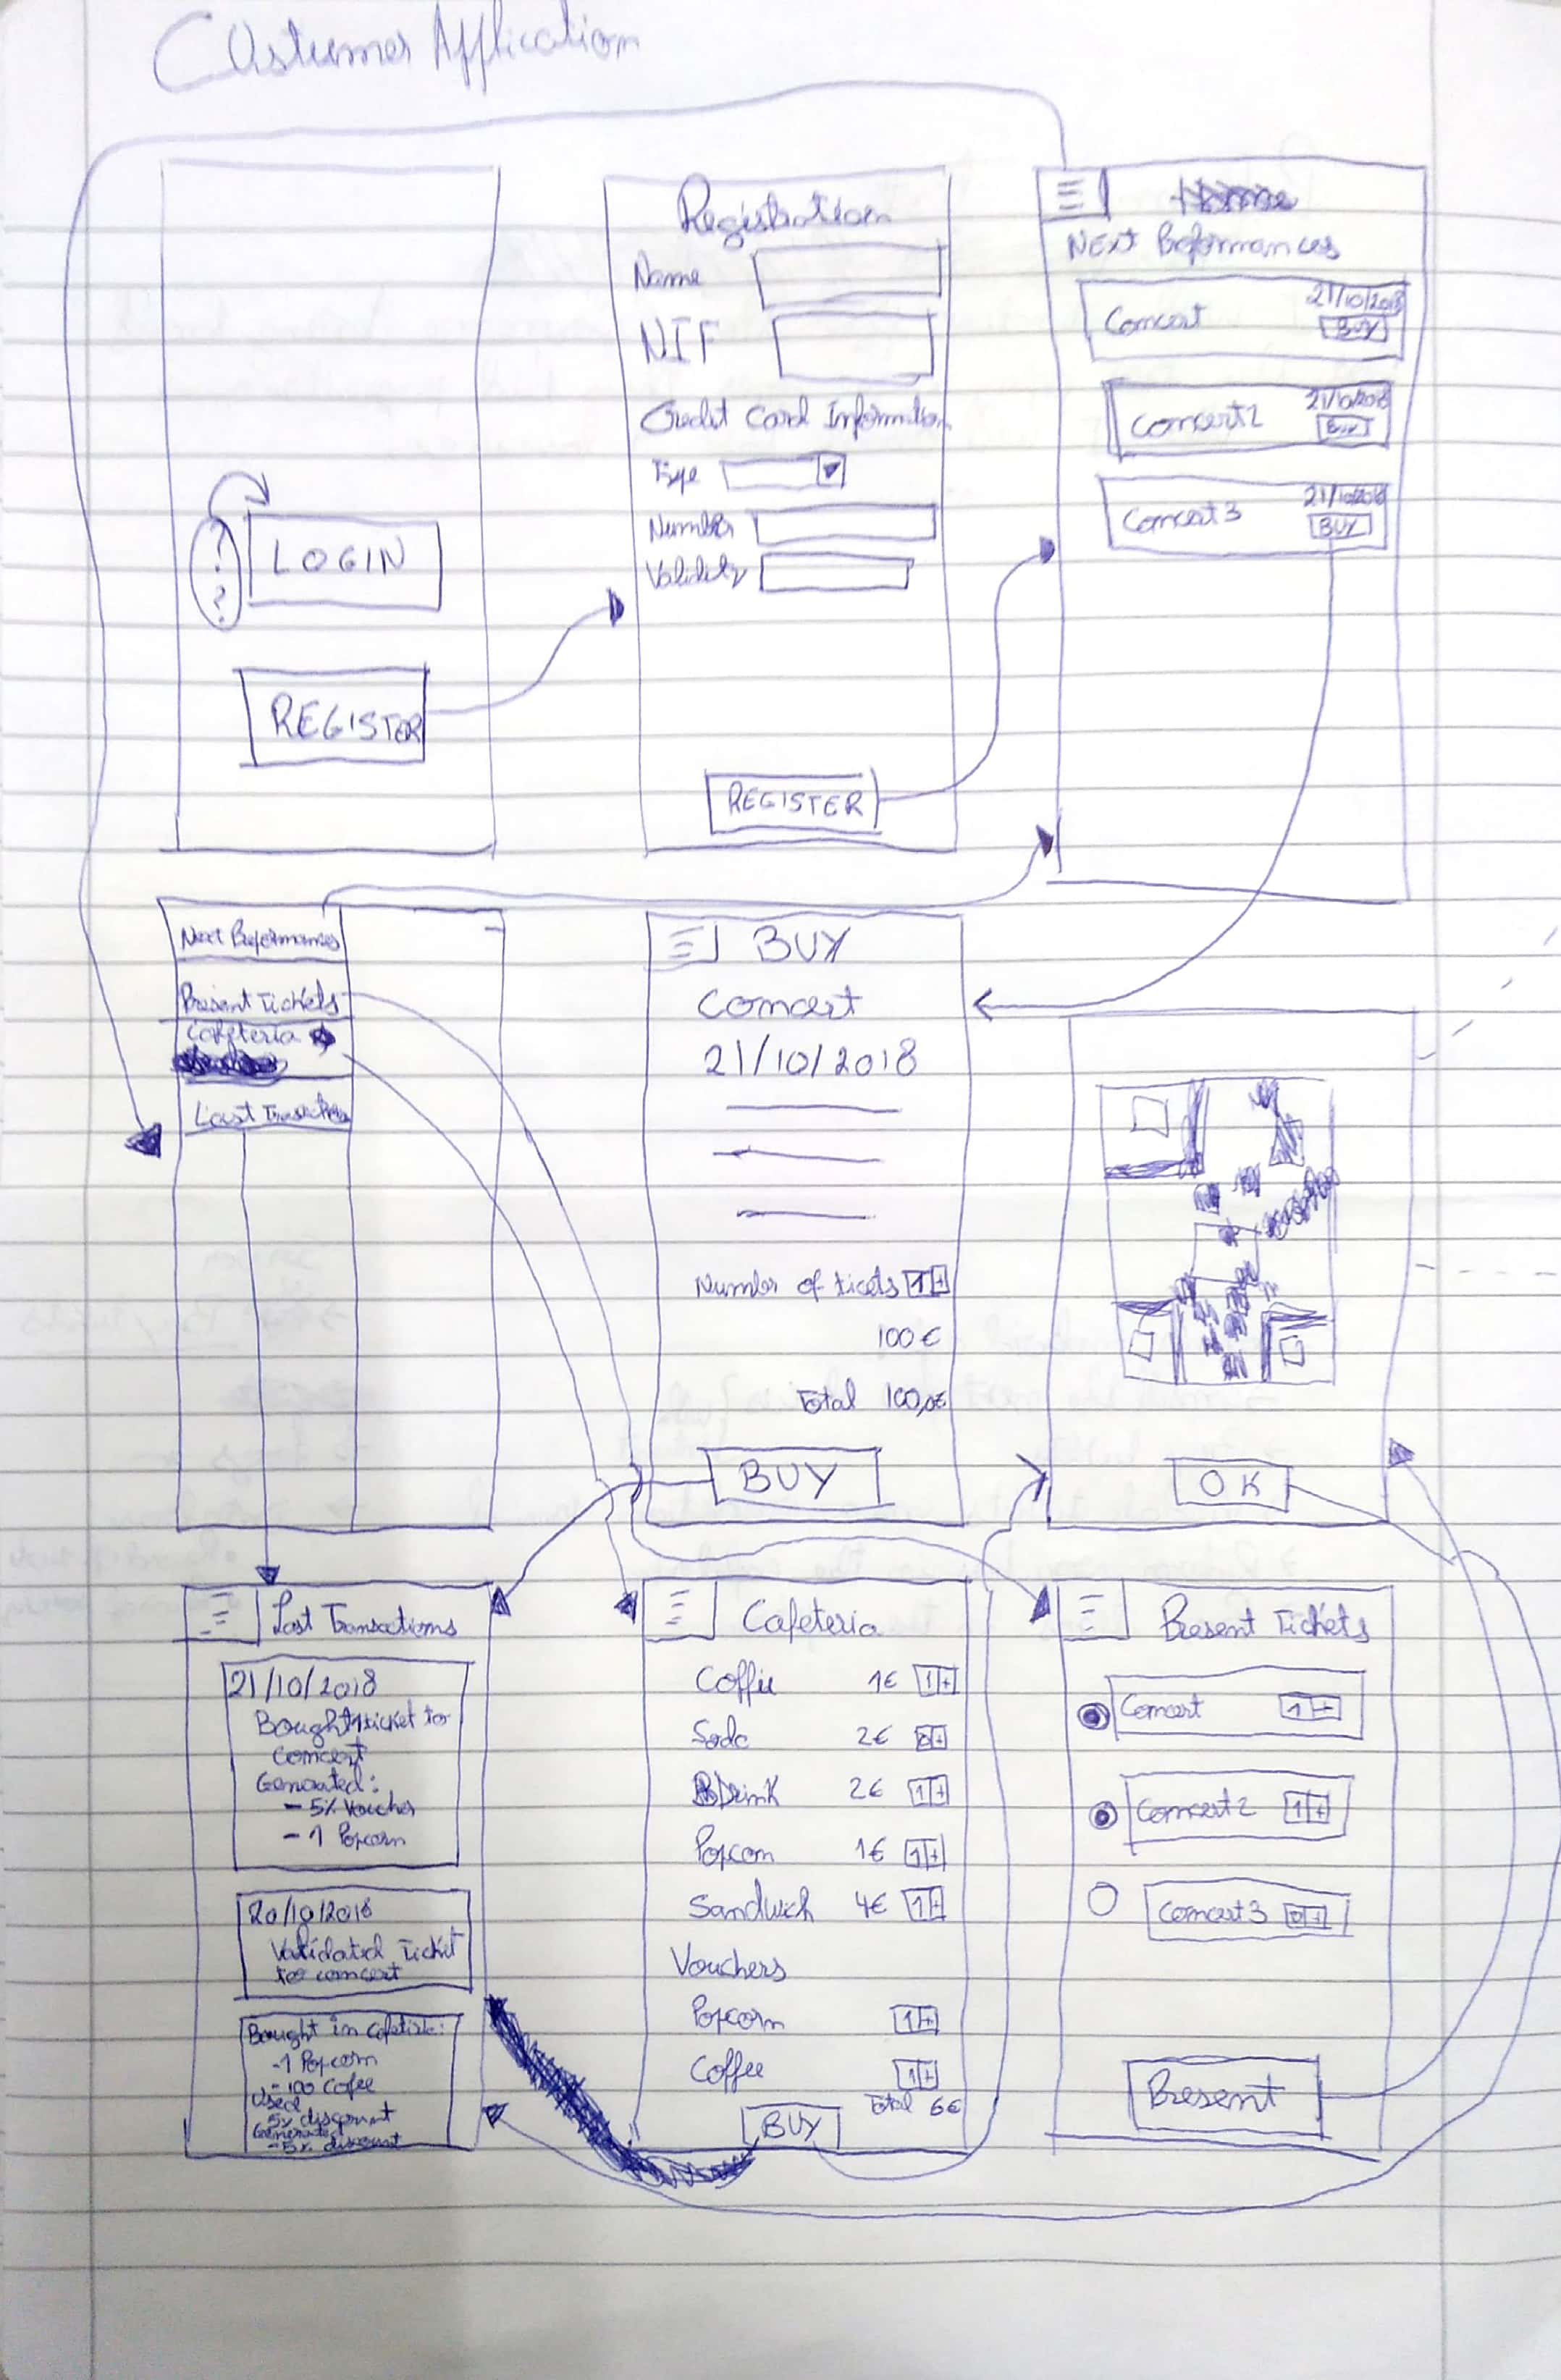 Custumer Application
?
?
LOGIN
REGISTER
Registration
Name
NIF
Credit Card Information
Type
Number
Validity
REGISTER
Home
Next Preformances
Concert
21/10/2018
BUY
Concert2
21/10/2018
BUY
Concert3
21/10/2018
BUY
Next Preformances
Present Tickets
Cafeteria
Last
BUY
Concert
21/10/2018
Number of ticets 1 +
100 €
Total 100,0€
BUY
OK
Last Transations
21/10/2018
Bought 1 ticket to
concert
Generated:
- 5% Voucher
- 1 Popcorn
20/10/2018
Validated Ticket
to concert
Bought in
-1 Popcorn
-100 Cofee
Used
5% discount
Generated
-5% discount
Cafeteria
Coffie 1€ 1 +
Soda 2€ 0 +
Drink 2€ 1 +
Popcorn 1€ 1 +
Sandwich 4€ 1 +
Vouchers
Popcorn 1 +
Coffee 1 +
Total 6€
BUY
Present Tickets
Concert 1 +
Concert2 1 +
Concert3 0 +
Present